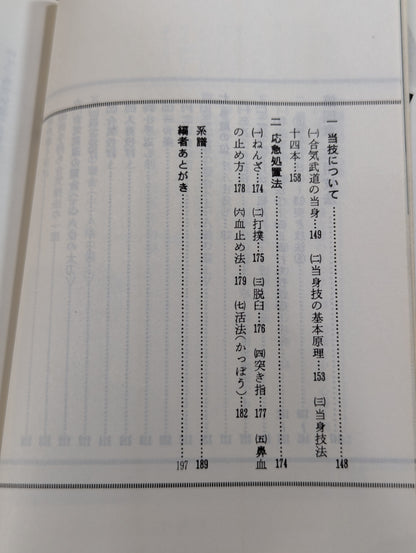 一 当技について……………………148
㈠合気武道の当身…149 ㈡当身技の基本原理…153 ㈢当身技法
十四本…158
二 応急処置法……………………174
㈠ねんざ…174 ㈡打撲…175 ㈢脱臼…176 ㈣突き指…177 ㈤鼻血
の止め方…178 ㈥血止め法…179 ㈦活法(かっぽう)…182
系譜……………………189
編者あとがき……………………197